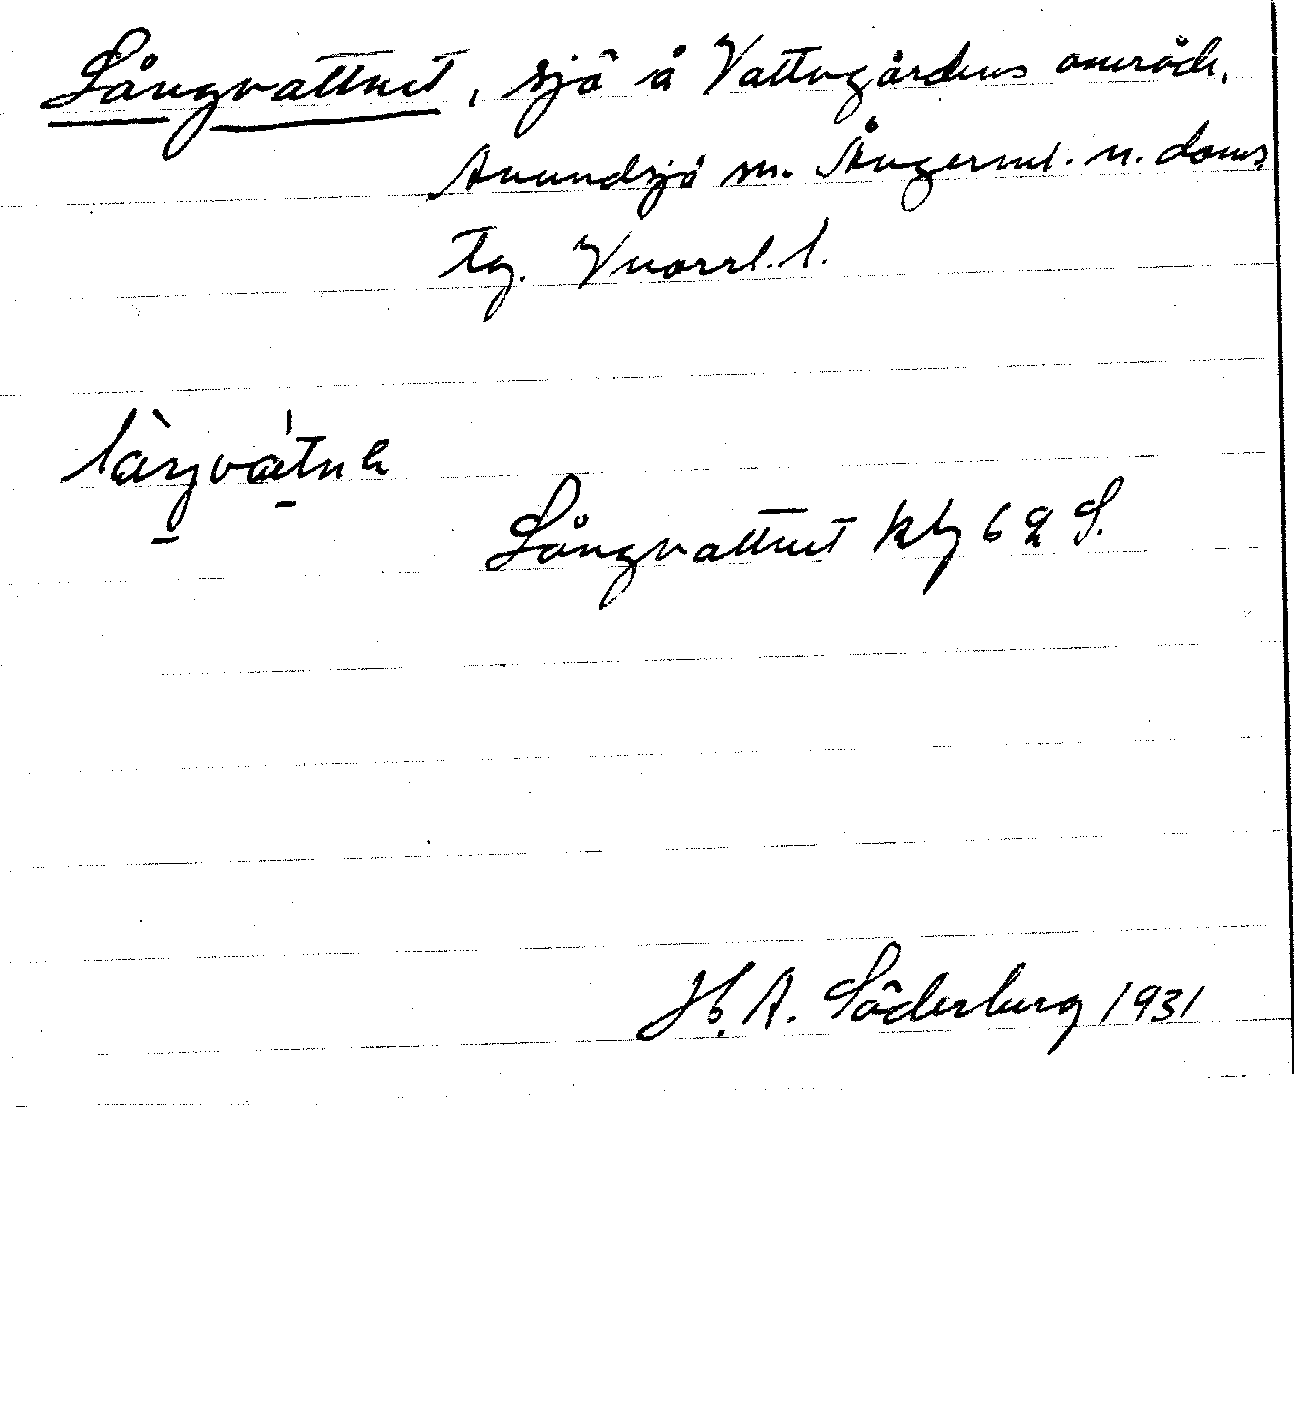 Långvattnet, sjö å Vattvgårdens område,
Anundsjö sn. Ångerml. n. doms
tg. Vnorrl. l.
làŋvátnə
Långvattnet kbg 62 S.
H. A. Söderberg 1931